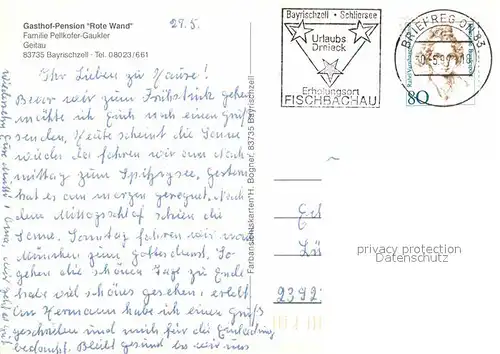 Gasthof-Pension "Rote Wand"
Familie Pellkofer-Gaukler
Geitau
83735 Bayrischzell · Tel. 08023/661
29.5.
Ihr Lieben zu Hause!
Bevor wir zum Frühstück gehen
möchte ich Euch noch einen Gruß
senden. Heute scheint die Sonne
wieder da fahren wir am Nach
mittag zum Spitzigsee. Gestern
hat es am morgen geregnet. Nach
dem Mittagsschlaf schien die
Sonne. Sonntag fahren wir nach
München zum Gottesdienst. So
gehen die schönen Tage zu Ende
habe viel schönes gesehen, erlebt.
An Hermann habe ich einen Gruß
geschrieben und mich für die Einladung
bedankt. Bleibt gesund so wir uns
Farbansichtskarten H. Bogner, 83735 Bayrischzell
Bayrischzell · Schliersee
Urlaubs
Dreieck
Erholungsort
FISCHBACHAU
BRIEFREGION 83
80
privacy protection
Datenschutz